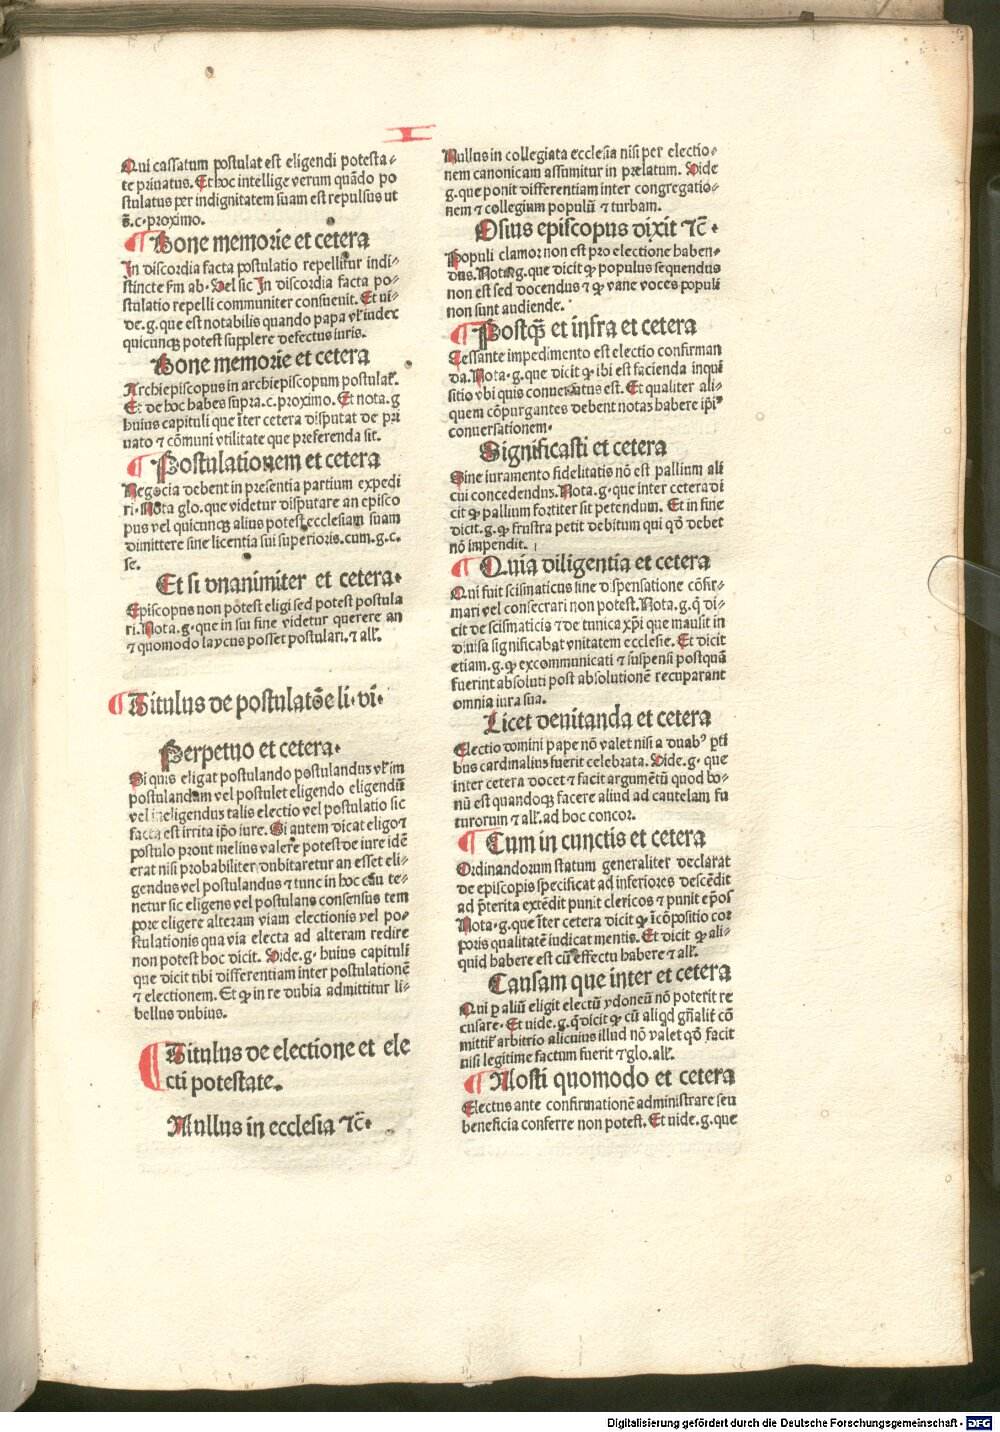 I
Qui cassatum postulat est eligendi potesta-
te priuatus. Et hoc intellige verum quãdo po
stulatus per indignitatem suam est repulsus ut
s̃.c.proximo.
¶ Bone memorie et cetera
In discordia facta postulatio repellitur indi-
stincte fm ab. Uel sic In discordia facta po-
stulatio repelli communiter consueuit. Et ui-
de.g.que est notabilis quando papa vl̃ iudex
quicunqꝫ potest supplere defectus iuris.
Bone memorie et cetera
Archiepiscopus in archiepiscopum postulat̃.
Et de hoc habes supra.c.proximo. Et nota.g
huius capituli que ĩter cetera disputat de pri
uato ⁊ cõmuni vtilitate que preferenda sit.
¶ Postulationem et cetera
Negocia debent in presentia partium expedi
ri. Nota glo.que videtur disputare an episco
pus vel quicunqꝫ alius potest ecclesiam suam
dimittere sine licentia sui superioris.cum.g.c.
se.
Et si vnanimiter et cetera.
Episcopus non põtest eligi sed potest postula
ri. Nota.g.que in sui fine videtur querere an
⁊ quomodo laycus posset postulari.⁊ all̃.
¶ Titulus de postulatõe li.vi.
Perpetuo et cetera.
Si quis eligat postulando postulandus vl̃ im
postulandam vel postulet eligendo eligendũ
vel ineligendus talis electio vel postulatio sic
facta est irrita ip̃o iure. Si autem dicat eligo ⁊
postulo prout melius valere potest de iure idẽ
erat nisi probabiliter dubitaretur an esset eli-
gendus vel postulandus ⁊ tunc in hoc cãu te-
netur sic eligens vel postulans consensus tem
pore eligere alteram viam electionis vel po-
stulationis qua via electa ad alteram redire
non potest hoc dicit. Uide.g. huius capituli
que dicit tibi differentiam inter postulationẽ
⁊ electionem. Et ꝙ in re dubia admittitur li-
bellus dubius.
¶ Titulus de electione et ele
cti potestate.
Nullus in ecclesia ⁊c̃.
Nullus in collegiata ecclesia nisi per electio-
nem canonicam assumitur in prelatum. Uide
g.que ponit differentiam inter congregatio-
nem ⁊ collegium populũ ⁊ turbam.
Osius episcopus dixit ⁊c̃.
Populi clamor non est pro electione haben-
dus. Nota.g.que dicit ꝙ populus sequendus
non est sed docendus ⁊ ꝙ vane voces populi
non sunt audiende.
¶ Postq̃ et infra et cetera
Cessante impedimento est electio confirman
da. Nota.g.que dicit ꝙ ibi est facienda inqui
sitio vbi quis conuersatus est. Et qualiter ali-
quem cõpurgantes debent notas habere ip̃i⁹
conuersationem.
Significasti et cetera
Sine iuramento fidelitatis nõ est pallium ali
cui concedendus. Nota.g.que inter cetera di
cit ꝙ pallium fortiter sit petendum. Et in fine
dicit.g.ꝙ frustra petit debitum qui qõ debet
nõ impendit.
¶ Quia diligentia et cetera
Qui fuit scismaticus sine dispensatione cõfir-
mari vel consecrari non potest. Nota.g.q̃ di-
cit de scismaticis ⁊ de tunica xp̃i que mansit in
diuisa significabat vnitatem ecclesie. Et dicit
etiam.g.ꝙ excommunicati ⁊ suspensi postquã
fuerint absoluti post absolutionẽ recuparant
omnia iura sua.
Licet deuitanda et cetera
Electio domini pape nõ valet nisi a duab⁹ p̃ti
bus cardinaliũ fuerit celebrata. Uide.g. que
inter cetera docet ⁊ facit argumẽtũ quod bo-
nũ est quandoqꝫ facere aliud ad cautelam fu
turorum ⁊ all̃.ad hoc concor.
¶ Cum in cunctis et cetera
Ordinandorum statum generaliter declarat
de episcopis specificat ad inferiores descẽdit
ad p̃terita extẽdit punit clericos ⁊ punit ep̃os
Nota.g.que ĩter cetera dicit ꝙ ĩcõpositio cor
poris qualitatẽ iudicat mentis. Et dicit ꝙ ali-
quid habere est cũ effectu habere ⁊ all̃.
Causam que inter et cetera
Qui p aliũ eligit electũ ydoneũ nõ poterit re
cusare. Et uide.g.q̃ dicit ꝙ cũ aliqd gñalit̃ cõ
mittit̃ arbitrio alicuius illud nõ valet qõ facit
nisi legitime factum fuerit ⁊ glo.all̃.
¶ Nosti quomodo et cetera
Electus ante confirmationẽ administrare seu
beneficia conferre non potest. Et uide.g.que
Digitalisierung gefördert durch die Deutsche Forschungsgemeinschaft - DFG